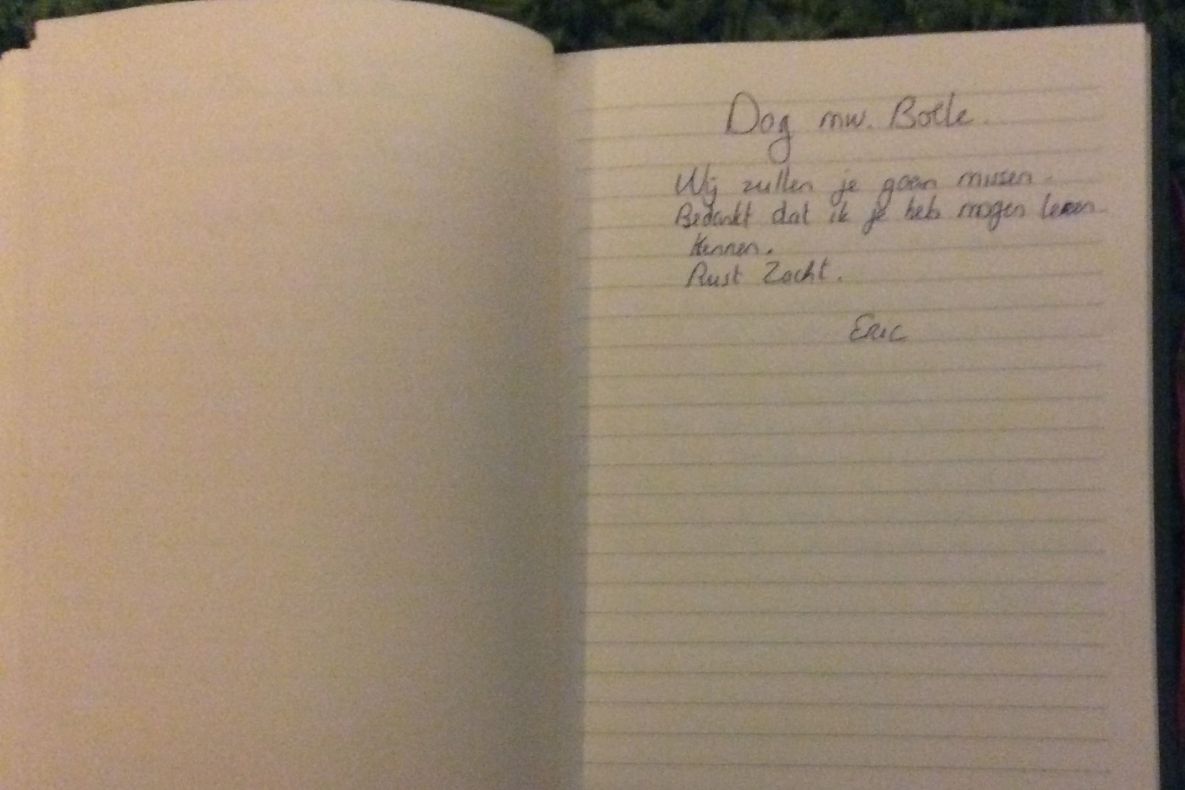 Dag mw. Bolle.
Wij zullen je gaan missen.
Bedankt dat ik je heb mogen leren
kennen.
Rust Zacht.
Eric